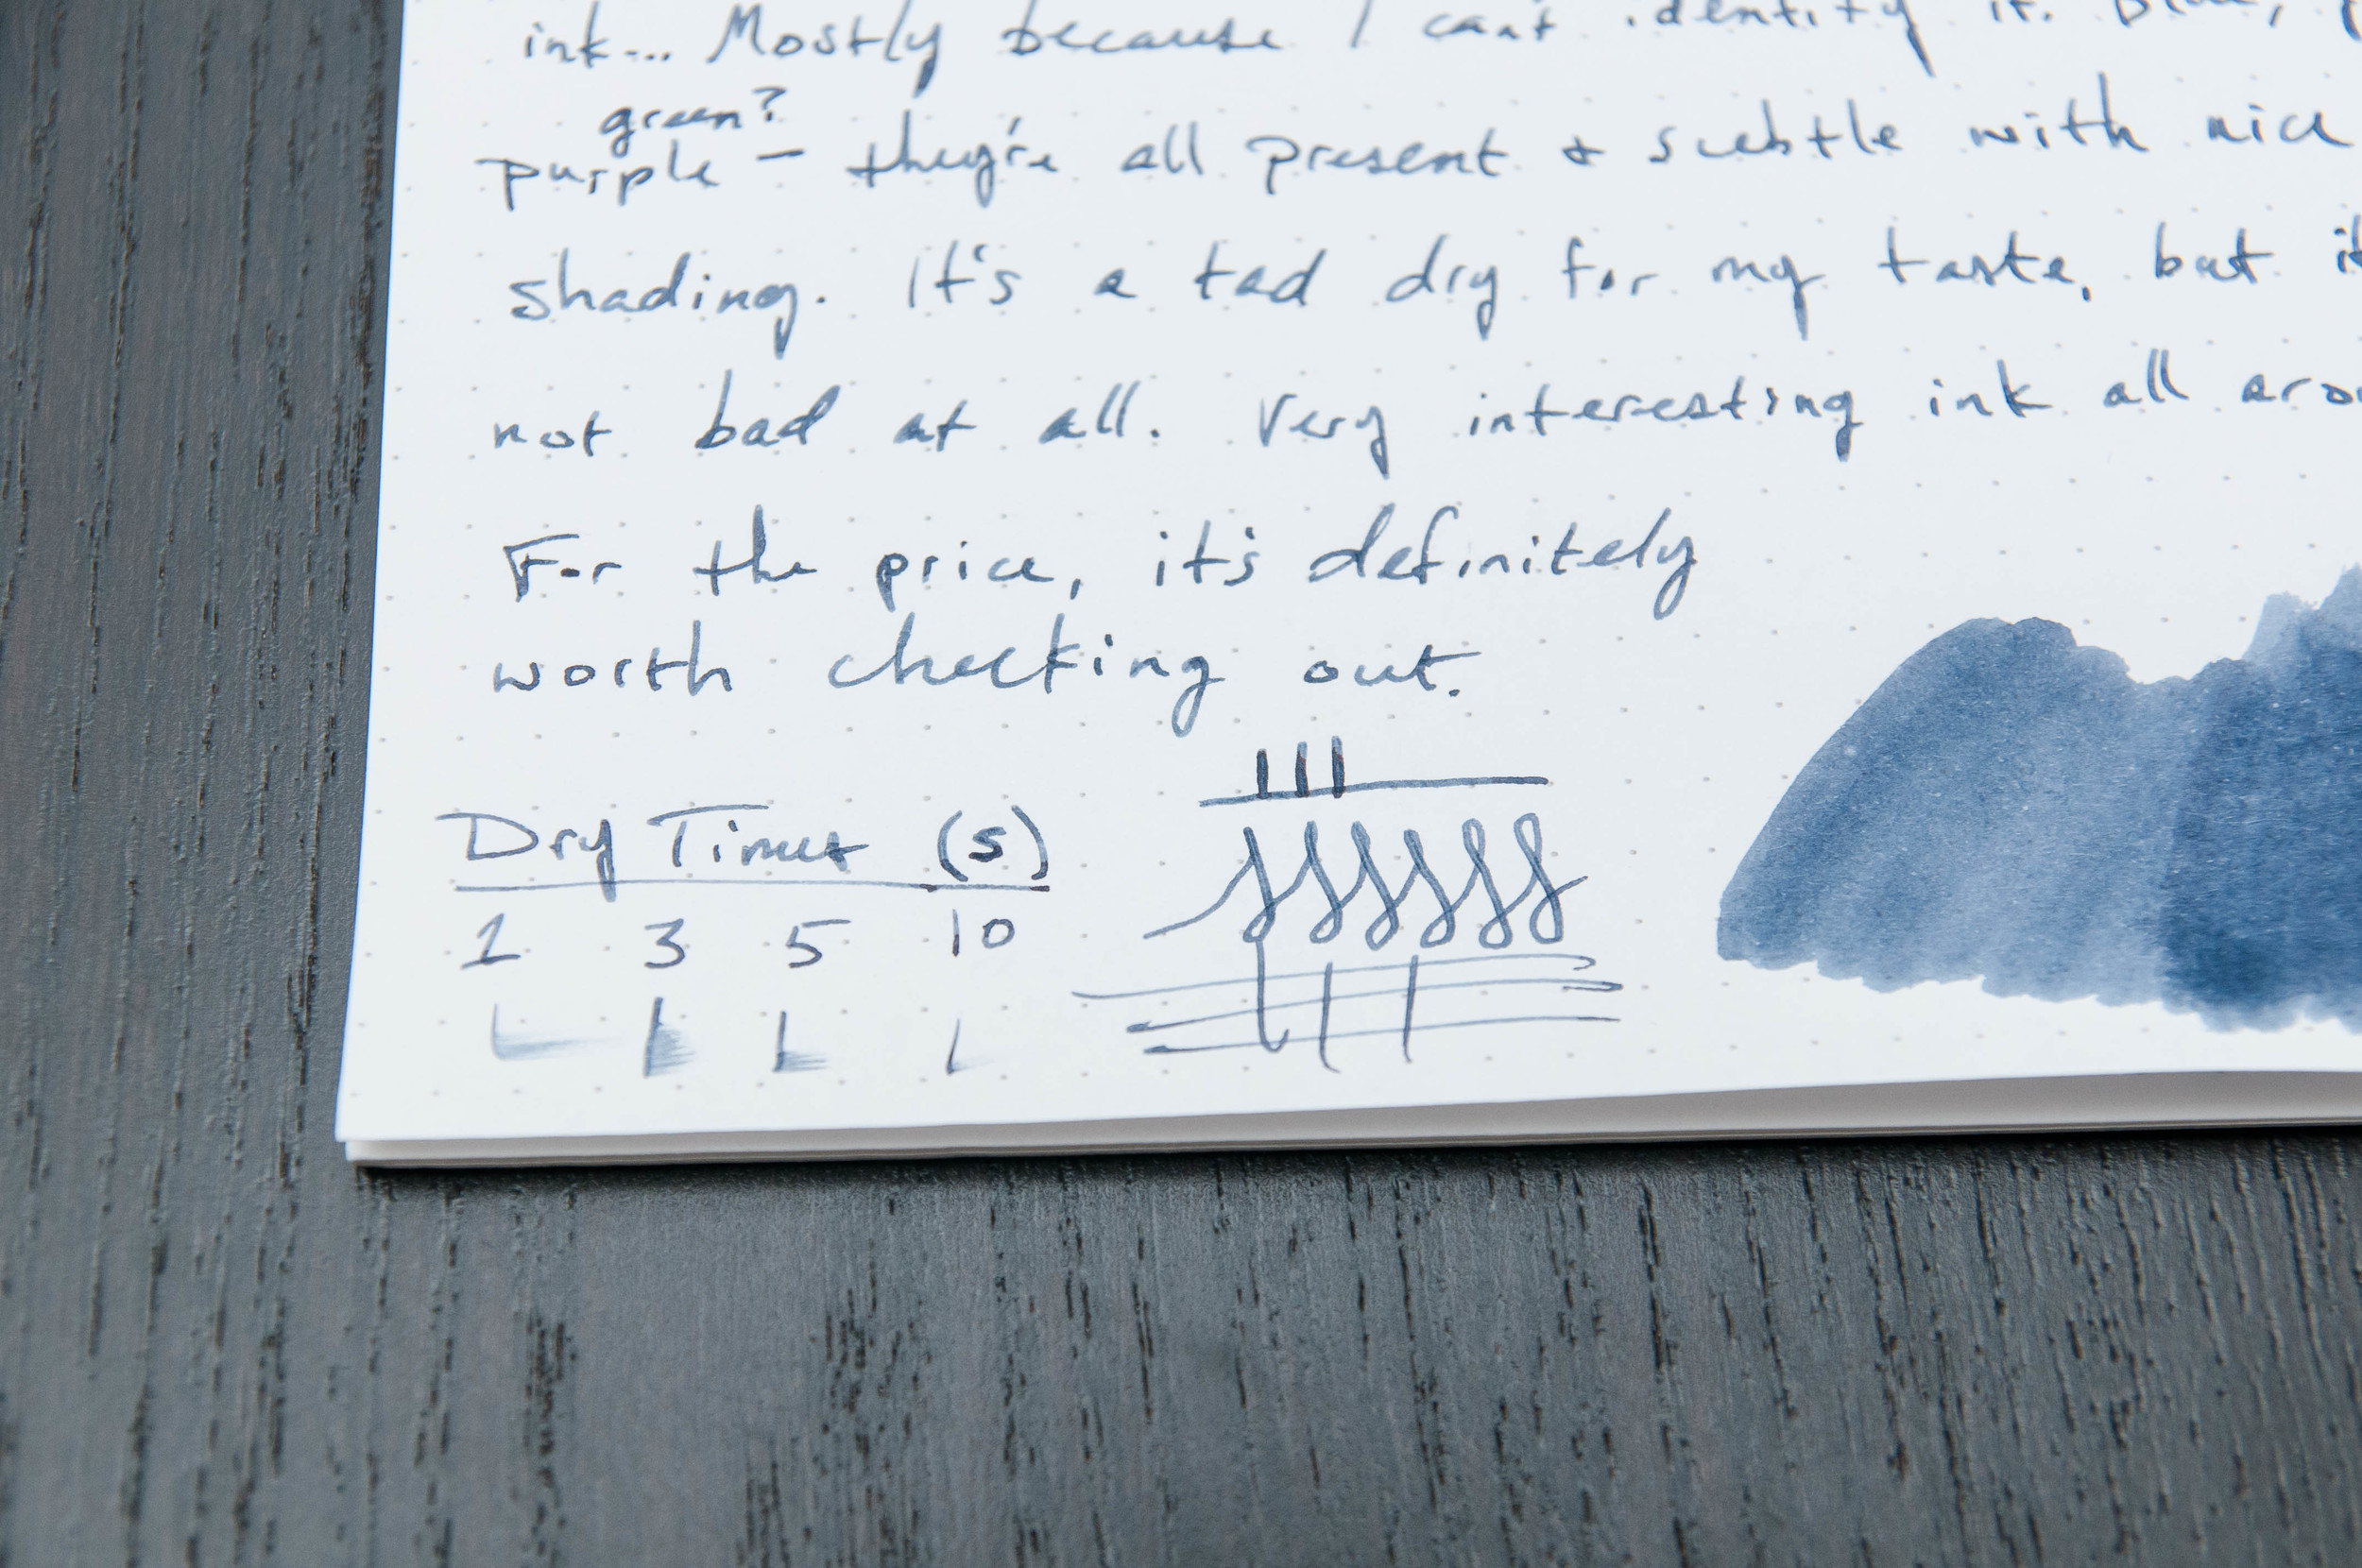 ink... Mostly because I can't identify it. Blue,
green?
purple - they're all present & subtle with nice
shading. It's a tad dry for my taste, but
not bad at all. Very interesting ink all
For the price, it's definitely
worth checking out.
Dry Times (s)
1 3 5 10